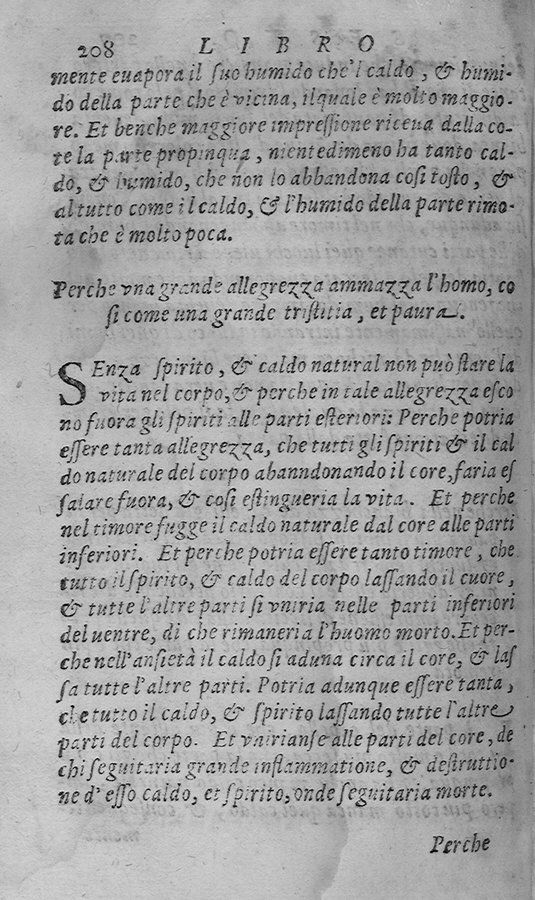 208 LIBRO
mente euapora il suo humido che'l caldo, & humi-
do della parte che è vicina, ilquale è molto maggio-
re. Et benche maggiore impressione riceua dalla co-
te la parte propinqua, nientedimeno ha tanto cal-
do, & humido, che non lo abbandona cosi tosto, &
al tutto come il caldo, & l'humido della parte rimo-
ta che è molto poca.
Perche vna grande allegrezza ammazza l'homo, co
si come una grande tristitia, et paura.
SEnza spirito, & caldo natural non può stare la
vita nel corpo, & perche in tale allegrezza esco
no fuora gli spiriti alle parti esteriori: Perche potria
essere tanta allegrezza, che tutti gli spiriti & il cal
do naturale del corpo abanndonando il core, faria es
salare fuora, & cosi estingueria la vita. Et perche
nel timore fugge il caldo naturale dal core alle parti
inferiori. Et perche potria essere tanto timore, che
tutto il spirito, & caldo del corpo lassando il cuore,
& tutte l'altre parti si vniria nelle parti inferiori
del uentre, di che rimaneria l'huomo morto. Et per-
che nell'ansietà il caldo si aduna circa il core, & las
sa tutte l'altre parti. Potria adunque essere tanta,
che tutto il caldo, & spirito lassando tutte l'altre
parti del corpo. Et vnirianse alle parti del core, de
chi seguitaria grande inflammatione, & destruttio-
ne d'esso caldo, et spirito, onde seguitaria morte.
Perche